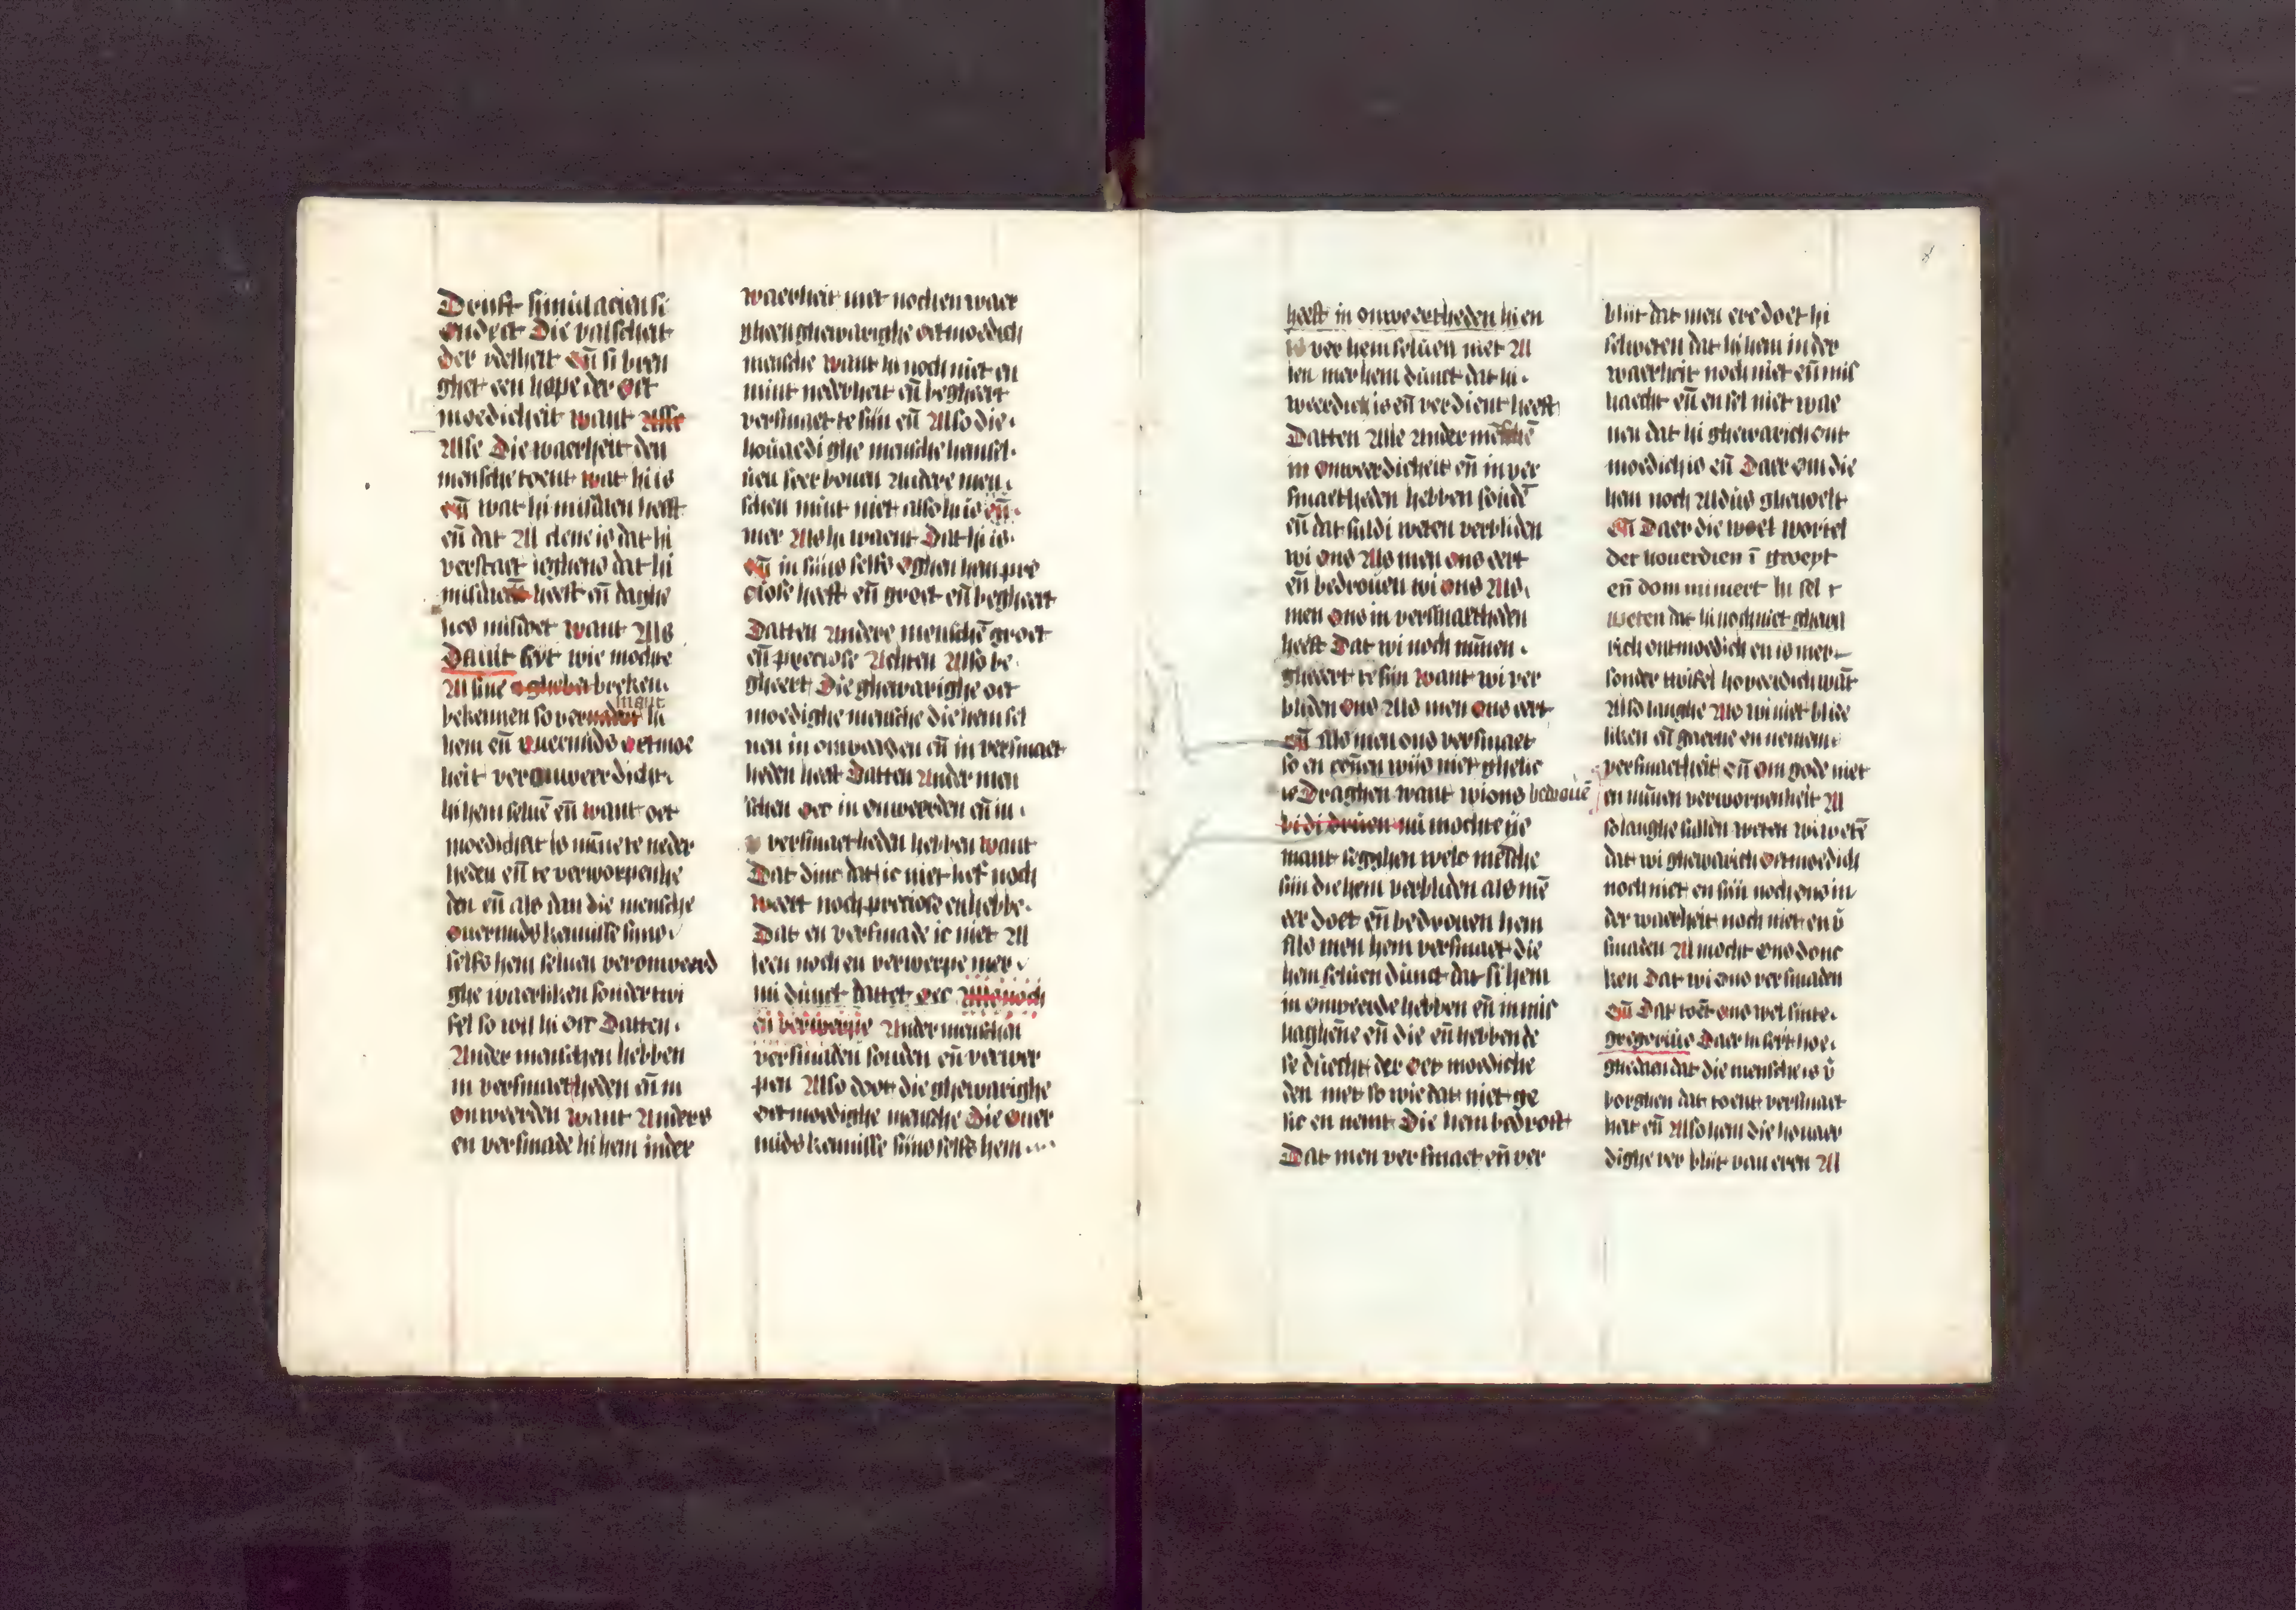 Druft simulacien si
ondect Die valscheit
der ydelheit eñ si bren
ghet een hope der oet
moedicheit want Alse
Alse Die waerheit den
mensche toent wat hi is
eñ wat hi misdaen heeft
eñ dat Al clene is dat hi
verstaet ieghens dat hi
misdaen heeft eñ daghe
lics misdoet want Als
Dauit seyt wie mochte
Al sine ghebreken
bekennen so vermaent hi
hem eñ ouermids oetmoe
heit veronweerdicht
hi hem seluē eñ want oet
moedicheit is mīne te neder
heden eñ te verworpenhe
den eñ als dan die mensche
ouermids kennisse sijns
selfs hem seluen veronweerd
ghe waerliken sonder twi
fel so wil hi oec Datten
Ander menschen hebben
in versmaetheden eñ in
onweerden want Anders
en versmade hi hem in der
waerheit niet noch en waer
gheen ghewarighe oetmoedich
mensche want hi noch niet en
mint nederheit eñ begheert
versmaet te sijn eñ Also die
houaedighe mensche hem sel
uen seer bouen Andere men
schen mint niet also hi is eñ
mer Als hi waent Dat hi is
eñ in sijns selfs oghen hem pre
ciose heeft eñ groet eñ begheert
Datten Andere menschē groet
eñ preciose Achten Also be
gheert Die ghewarighe oet
moedighe mensche die hem sel
uen in onweerden eñ in versmaet
heden heet Datten Ander men
schen oec in onweerden eñ in
versmaetheden hebben want
Dat dinc dat ic niet lief noch
weert noch preciose en hebbe
Dat en versmade ic niet Al
leen noch en verwerpe mer
mi dūnct dattet oec Als noch
en verwerpe Ander menschen
versmaden souden eñ verwer
pen Also doet die ghewarighe
oetmoedighe mensche Die ouer
mids kennisse sijns selfs hem
heeft in onweertheden hi en
is ver hem seluen niet Al
len mer hem dūnct dat hi
weerdich is eñ verdient heeft
Datten Alle Ander mēschē
in onweerdicheit eñ in ver
smaetheden hebben soudē
eñ dat suldi weten verbliden
wi ons Als men ons eert
eñ bedrouen wi ons Als
men ons in versmaetheden
heeft Dat wi noch mīnen
gheeert te sijn want wi ver
bliden ons Als men ons eert
eñ Als men ons versmaet
so en cōnen wijs niet ghelic
ic Draghen want wi ons bedrouē
bi di druen nu mochte ye
mant segghen welc mēsche
sijn die hem verbliden als mē
eer doet eñ bedrouen hem
Als men hem versmaet die
hem seluen dūnct dat si hem
in onweerde hebben eñ in mis
haghene eñ die eñ hebben de
se duecht der oet moediche
den niet so wie dat niet ge
lic en nemt Die hem bedroeft
Dat men versmaet eñ ver
blijt dat men ere doet hi
sel weten dat hi hem in der
waerheit noch niet eñ mis
haecht eñ en sel niet wae
nen dat hi ghewarich ont
moedich is eñ Daer om die
hen noch Aldus ghevoelt
eñ Daer die woel wortel
der houerdien ī groeyt
eñ dommineert hi sel
weten dat hi noch niet ghewa
rich ontmoedich en is mer
sonder twifel hoverdich wāt
Also langhe Als wi niet blide
liken eñ gaerne en nemen
versmaetheit eñ om gode niet
en mīnen verworpenheit Al
so langhe sullen weten wi wetē
dat wi ghewarich oetmoedich
noch niet en sijn noch ons in
der waerheit noch niet en v̄
smaden Al mocht ons donc
ken Dat wi ons versmaden
eñ Dat toēt ons wel sinte
gregorius Daer hi seyt hoe
ghedaen dat die mensche is v̄
borghen dat toent versmaet
heit eñ Also hem die houaer
dighe ver blijt van eren Al